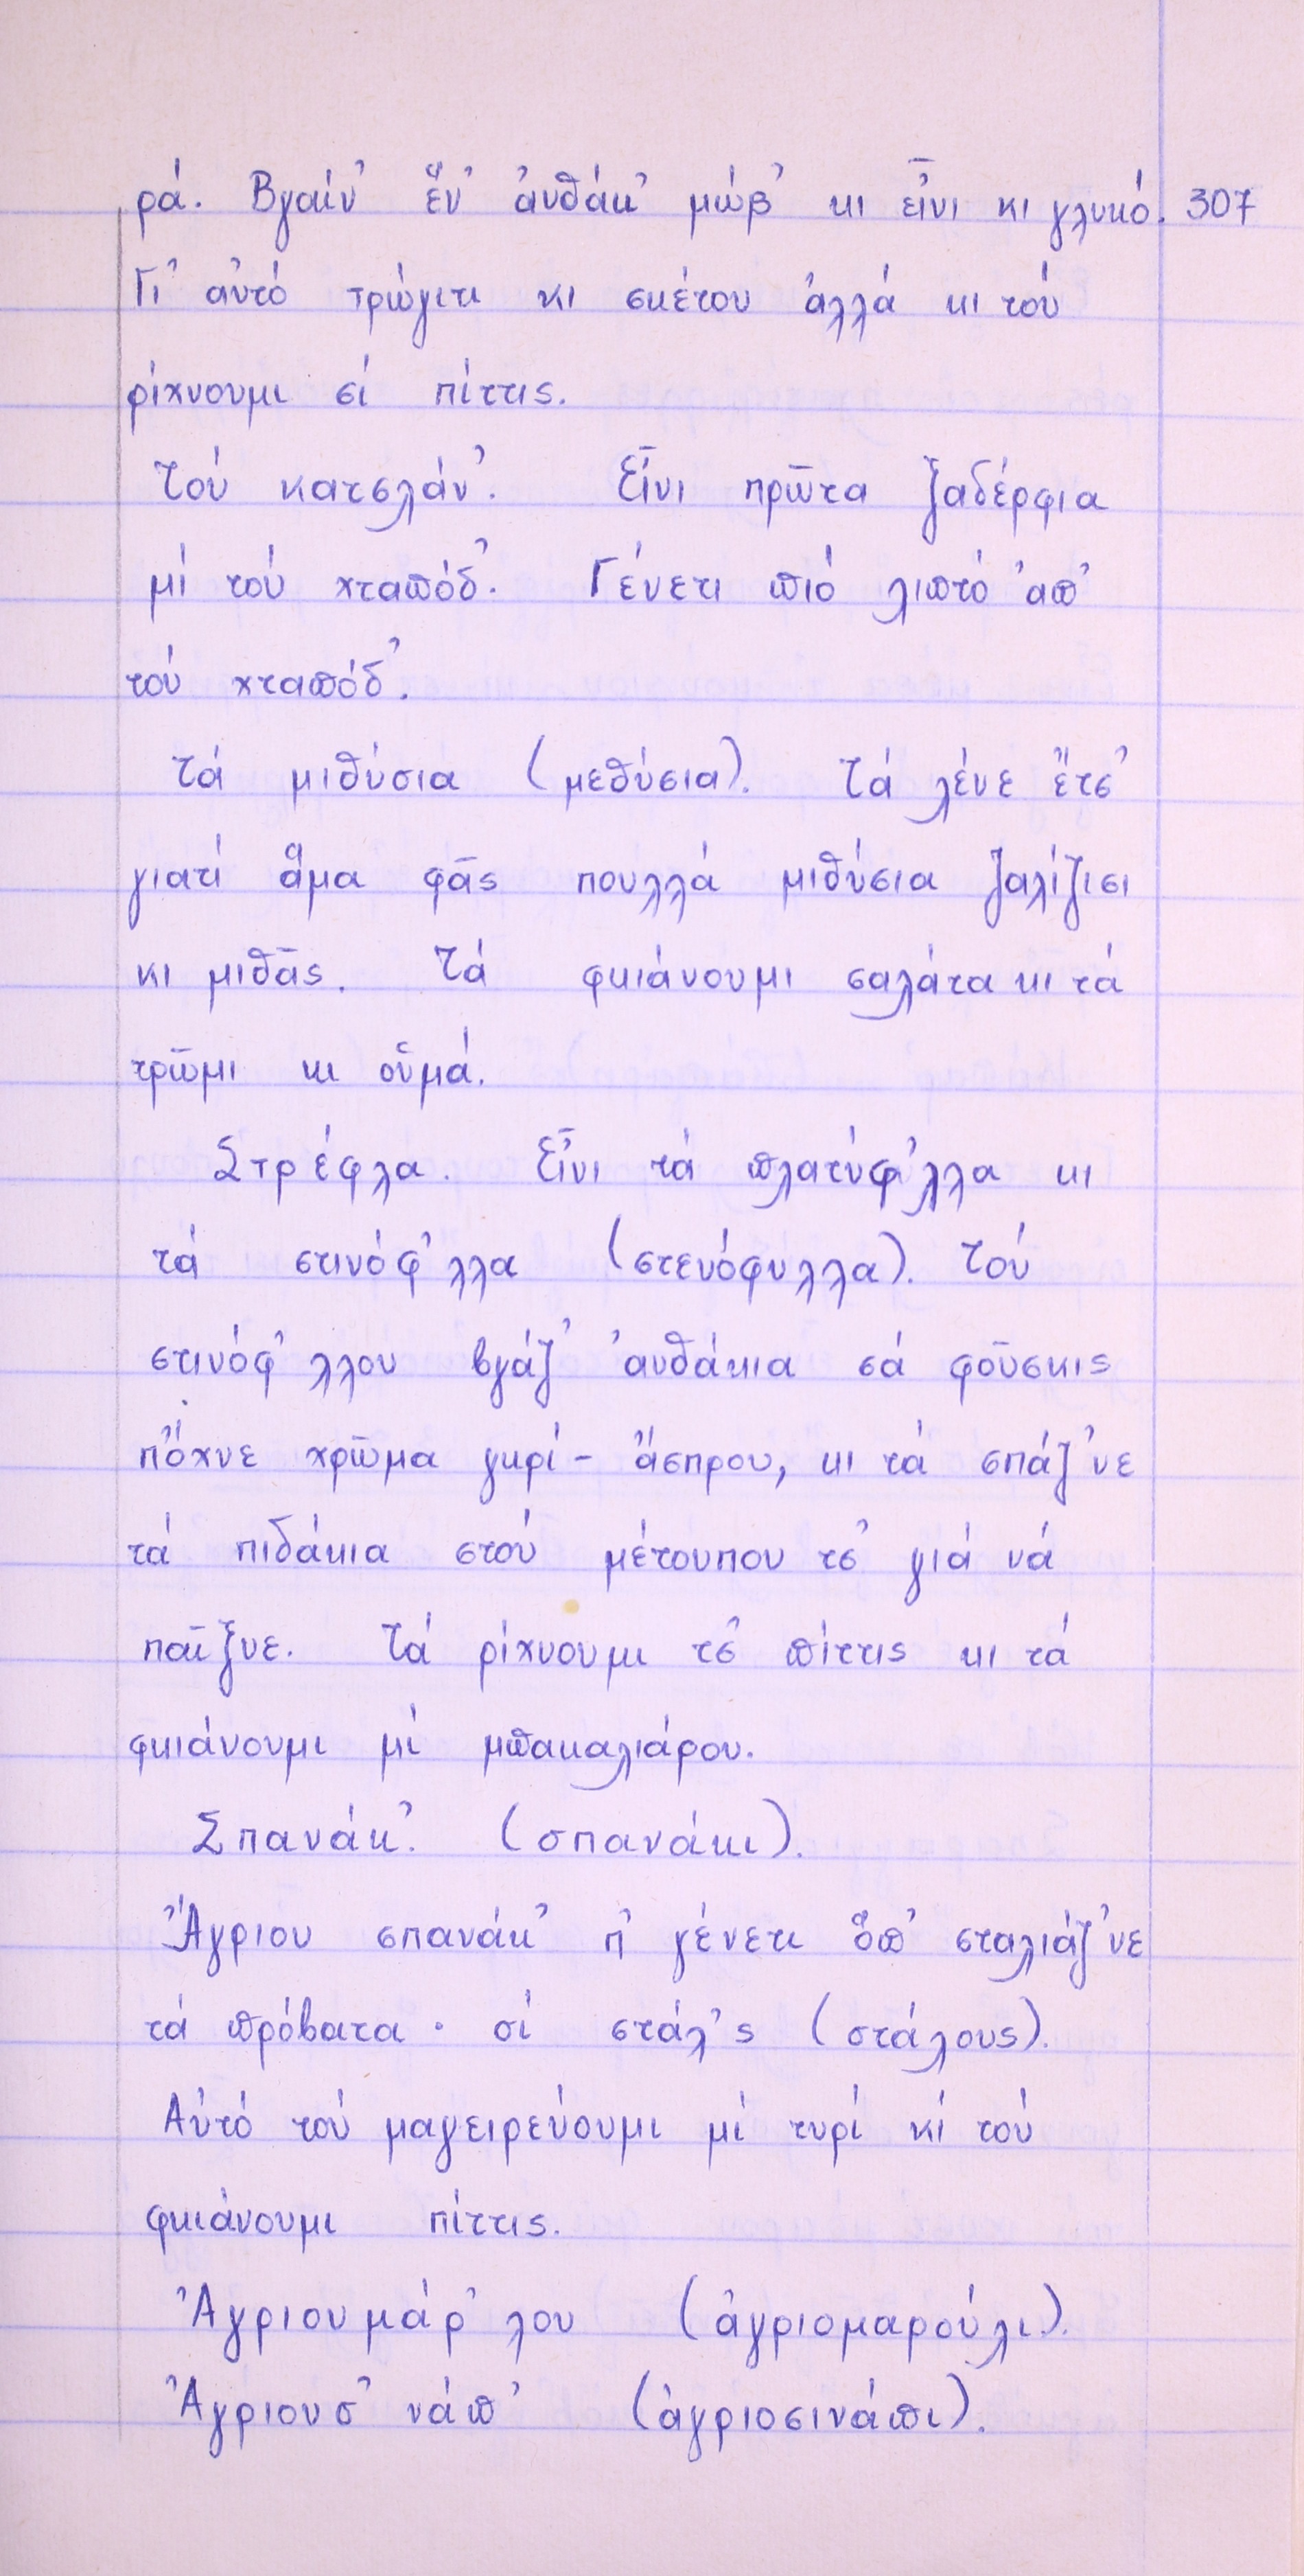 ρά. Βγαίν' ἕν' ἀνθάκ' μώβ' κι εἶνι κι γλυκό. 307
Γι' αὐτό τρώγιτι κι σκέτου ἀλλά κι τού
ρίχνουμι σί πίττις.
Τού κατσλάν'. Εἶνι πρῶτα ξαδέρφια
μί τού χταπόδ'. Γένετι πιό λιπτό ἀπ'
τού χταπόδ'.
Τά μιθύσια (μεθύσια). Τά λένε ἔτσ'
γιατί ἅμα φᾶς πουλλά μιθύσια ζαλίζισι
κι μιθᾶς. Τά φκιάνουμι σαλάτα κι τά
τρῶμι κι οὐμά.
Στρέφλα. Εἶνι τά πλατύφ'λλα κι
τά στινόφ'λλα (στενόφυλλα). Τού
στινόφ'λλου βγάζ' ἀνθάκια σά φοῦσκις
πὄχνε χρῶμα γκρί - ἄσπρου, κι τά σπάζ'νε
τά πιδάκια στού μέτουπου τσ' γιά νά
παῖξνε. Τά ρίχνουμι τσ' πίττις κι τά
φκιάνουμι μί μπακαλιάρου.
Σπανάκ'. (σπανάκι).
Ἄγριου σπανάκ' π' γένετι ὅπ' σταλιάζ'νε
τά πρόβατα · σί στάλ'ς (στάλους).
Αὐτό τού μαγειρεύουμι μί τυρί κί τού
φκιάνουμι πίττις.
Ἀγριουμάρ'λου (ἀγριομαρούλι).
Ἀγριουσ'νάπ' (ἀγριοσινάπι).